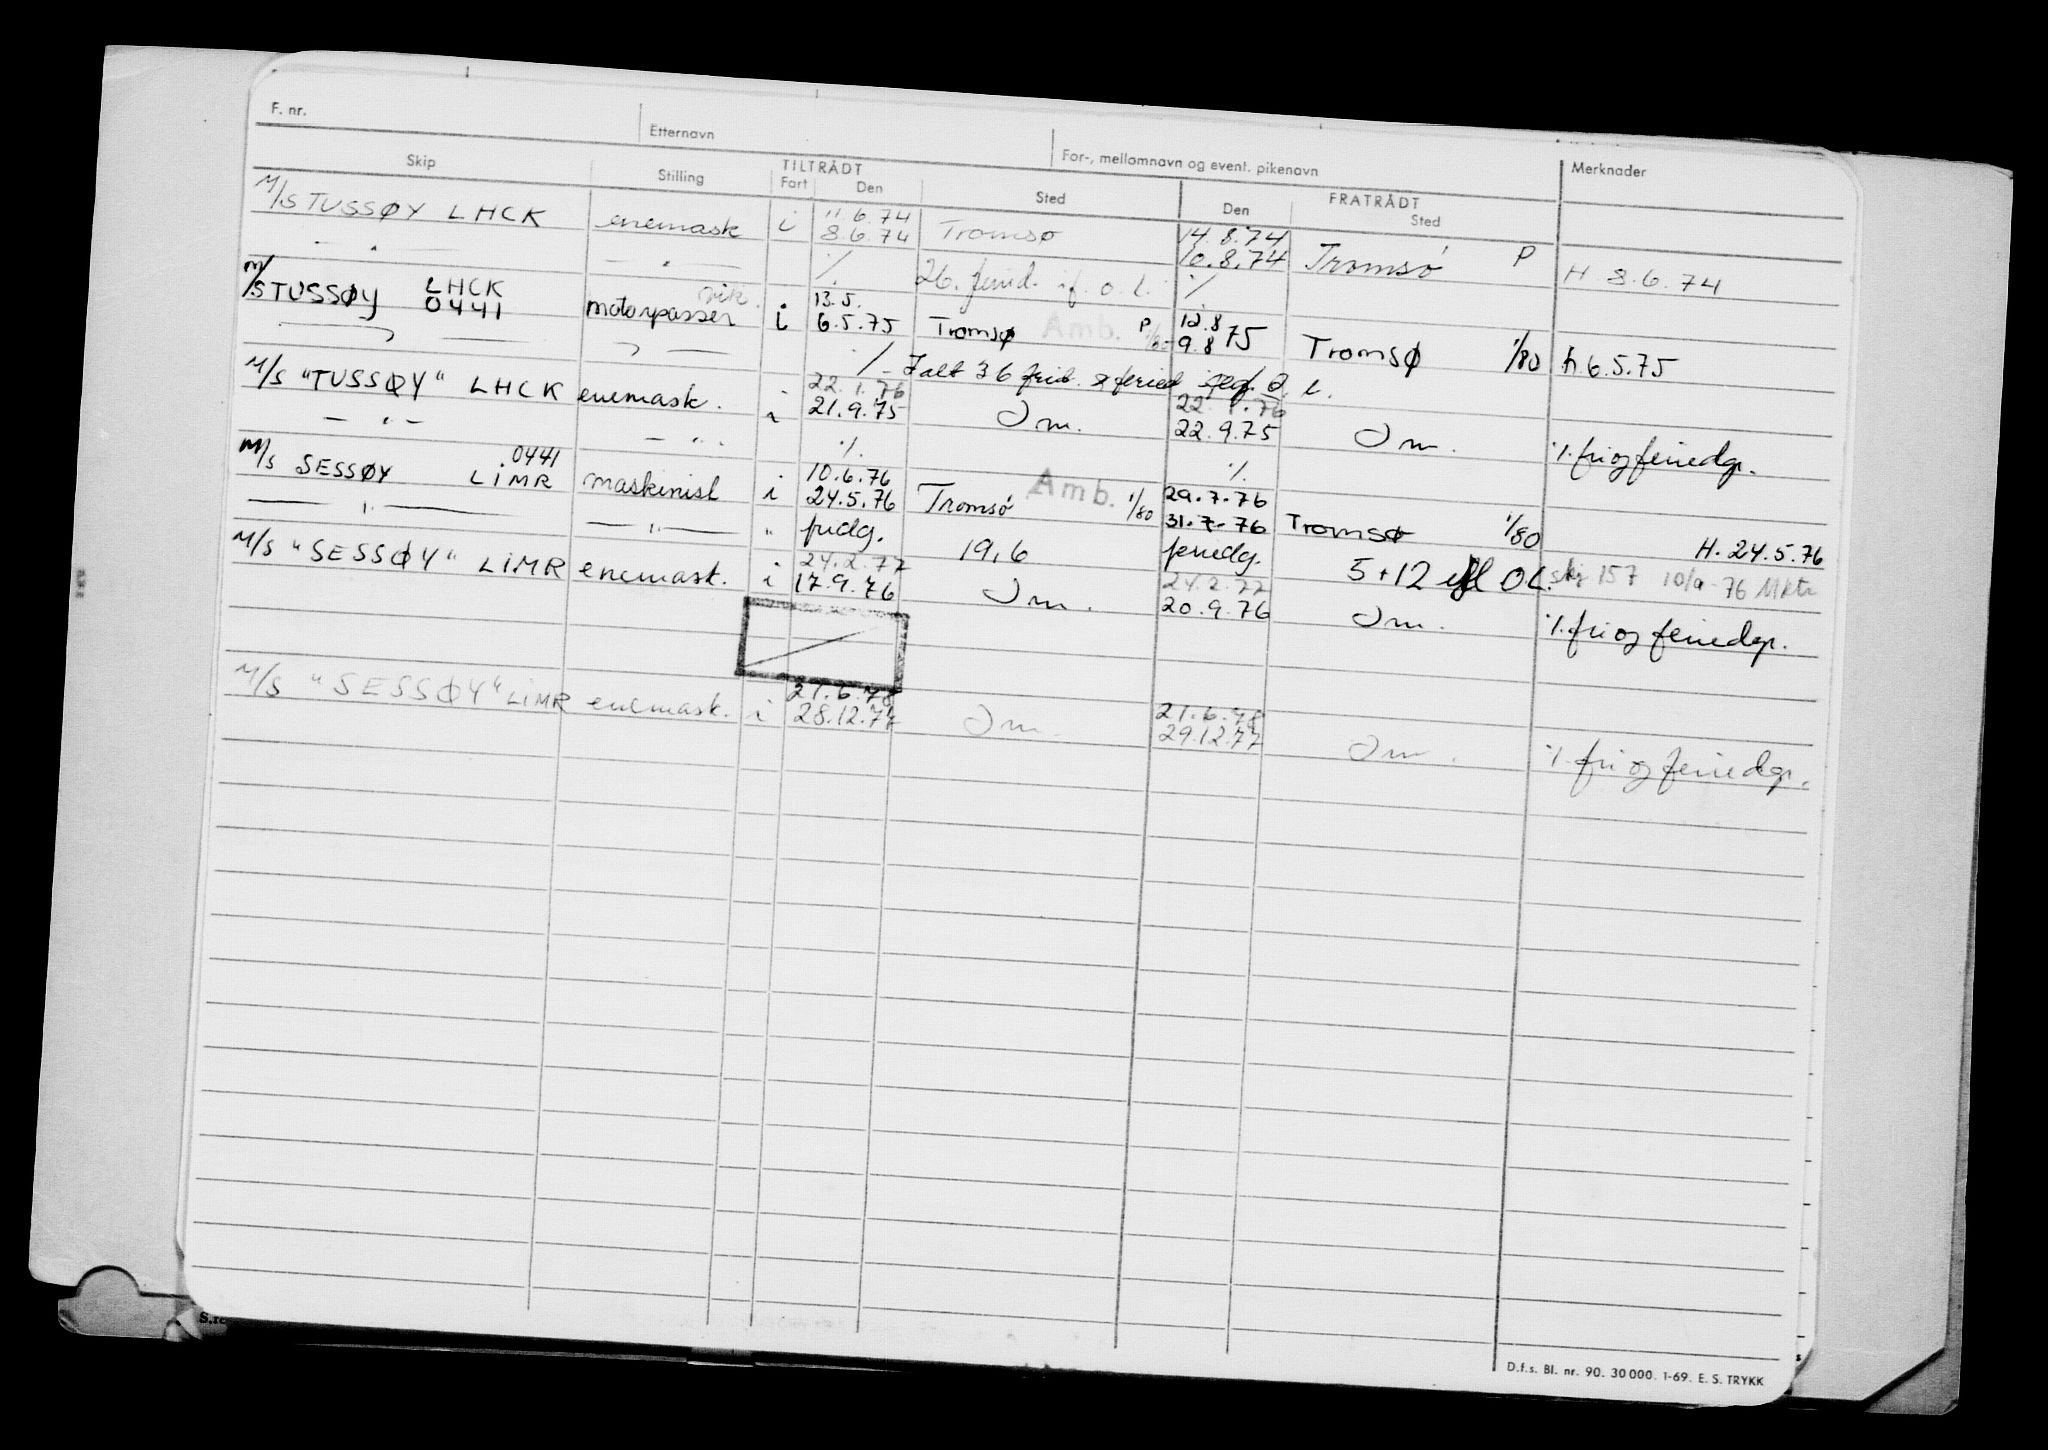 F. nr. Etternavn For-, mellomnavn og event. pikenavn Merknader
Skip Stilling TILTRÅDT Fart Den Sted FRATRÅDT Den Sted
11.6.74 14.8.74
M/S TUSSØY LHCK enemask i 8.6.74 Tromsø 10.8.74 Tromsø P H 8.6.74
— " — — " — % 26. feried. if. o. l. %
LHCK vik. 13.5. 12.8
M/S TUSSØY 0441 motorpasser i 6.5.75 Tromsø Amb. P 9.8 75 Tromsø 1/80 h 6.5.75
— " — — " — % Ialt 36 frid. & feried o. l.
22.1.76 22.1.76
M/S "TUSSØY" LHCK enemask. i 21.9.75 Om. 22.9.75 Om. % fri og feriedgr.
— " — — " — % %
0441 10.6.76 Amb. 29.7.76
M/S SESSØY LIMR maskinist i 24.5.76 Tromsø 1/80 31.7.76 Tromsø 1/80 H. 24.5.76
— " — — " — " fridg. 19,6 feriedg. 5+12 OL. 157 10/9-76
24.2.77 24.2.77
M/S "SESSØY" LIMR enemask. i 17.9.76 Om. 20.9.76 Om. % fri og feriedgr.
21.6.78 21.6.78
M/S "SESSØY" LIMR enemask. i 28.12.77 Om. 29.12.77 Om. % fri og feriedgr.
D.f.s. Bl. nr. 90. 30 000. 1-69. E. S. TRYKK